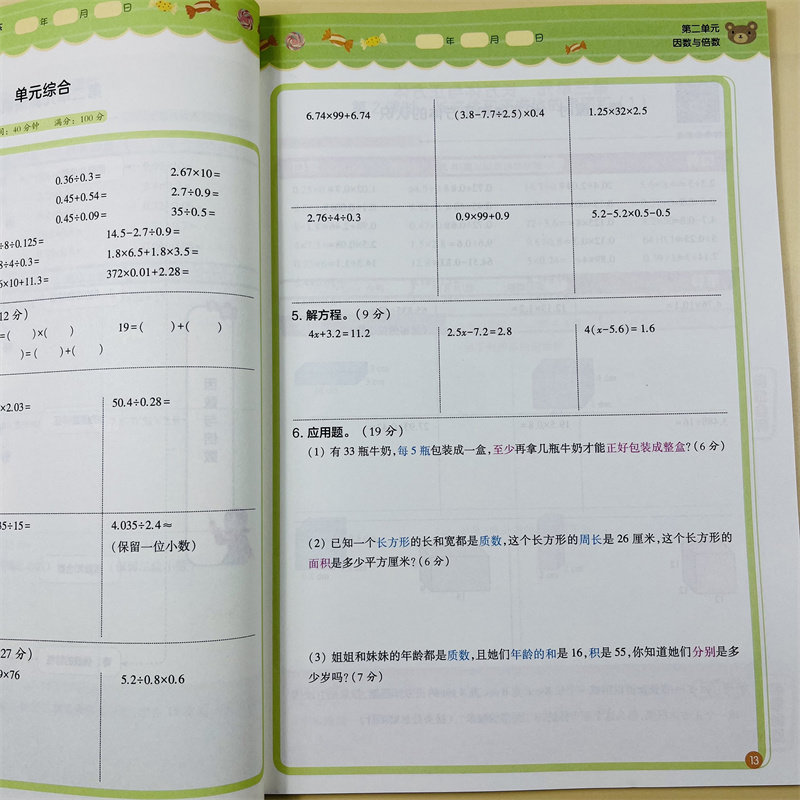 年 月 日
单元综合
间：40分钟 满分：100分
0.36÷0.3= 2.67×10=
0.45+0.54= 2.7÷0.9=
0.45÷0.09= 35÷0.5=
÷8÷0.125= 14.5-2.7÷0.9=
8÷4÷0.3= 1.8×6.5+1.8×3.5=
×10+11.3= 372×0.01+2.28=
12分）
=( )×( ) 19=( )+( )
)=( )+( )
×2.03= 50.4÷0.28=
35÷15= 4.035÷2.4≈
（保留一位小数）
27分）
9×76 5.2÷0.8×0.6
年 月 日
第二单元
因数与倍数
6.74×99+6.74 (3.8-7.7÷2.5)×0.4 1.25×32×2.5
2.76÷4÷0.3 0.9×99+0.9 5.2-5.2×0.5-0.5
5. 解方程。（9分）
4x+3.2=11.2 2.5x-7.2=2.8 4(x-5.6)=1.6
6. 应用题。（19分）
（1）有33瓶牛奶,每5瓶包装成一盒,至少再拿几瓶牛奶才能正好包装成整盒?(6分)
（2）已知一个长方形的长和宽都是质数,这个长方形的周长是26厘米,这个长方形的
面积是多少平方厘米?(6分)
（3）姐姐和妹妹的年龄都是质数,且她们年龄的和是16,积是55,你知道她们分别是多
少岁吗?(7分)
13